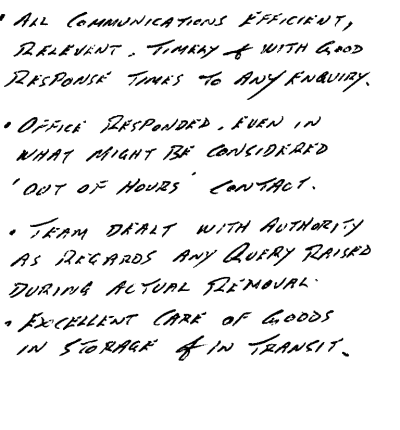 • ALL COMMUNICATIONS EFFICIENT,
RELEVENT, TIMELY & WITH GOOD
RESPONSE TIMES TO ANY ENQUIRY.
• OFFICE RESPONDED, EVEN IN
WHAT MIGHT BE CONSIDERED
'OUT OF HOURS' CONTACT.
• TEAM DEALT WITH AUTHORITY
AS REGARDS ANY QUERY RAISED
DURING ACTUAL REMOVAL.
• EXCELLENT CARE OF GOODS
IN STORAGE & IN TRANSIT.